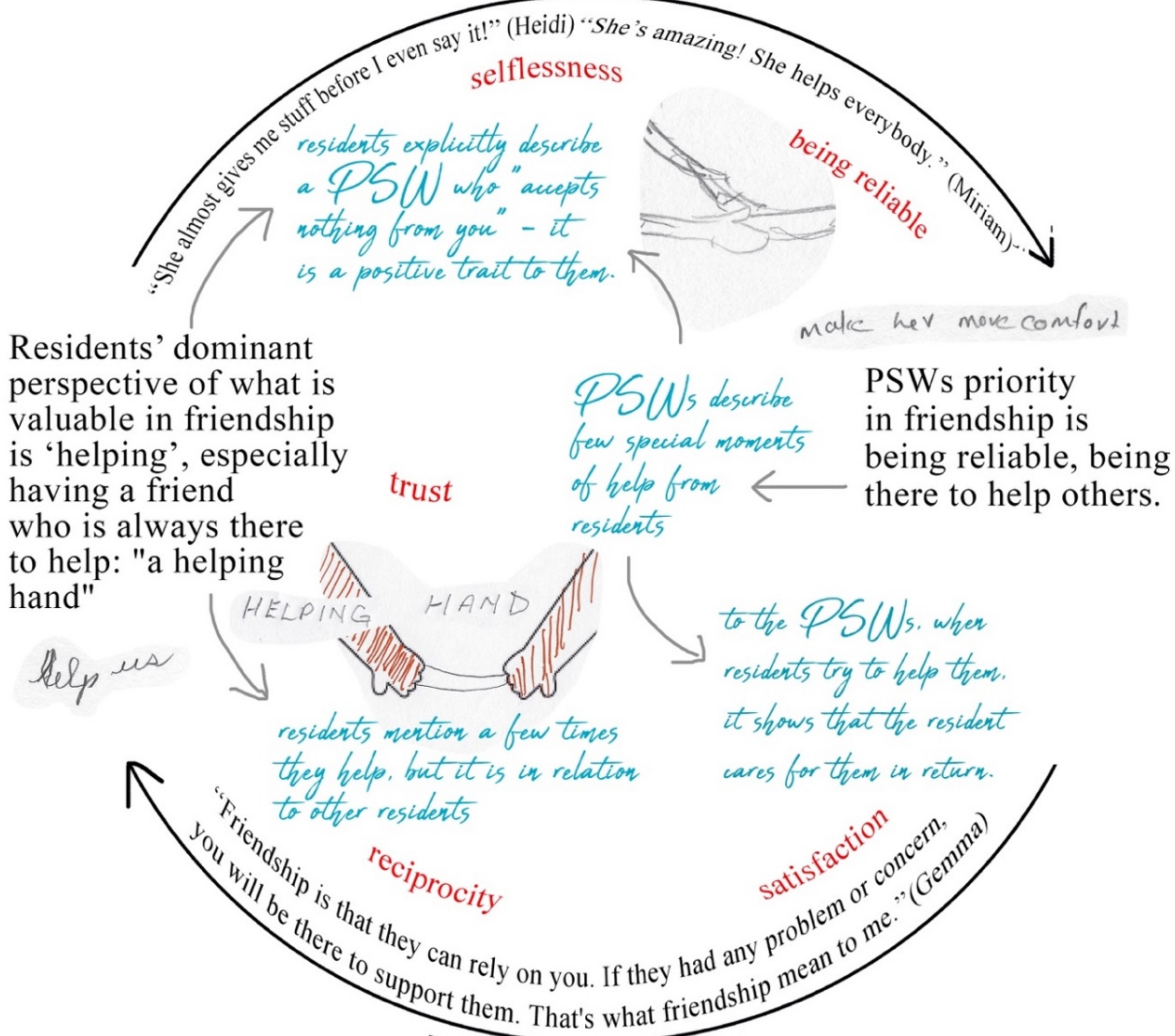 “She almost gives me stuff before I even say it!” (Heidi) “She’s amazing! She helps everybody.” (Miriam)
selflessness
being reliable
residents explicitly describe
a PSW who "accepts
nothing from you" - it
is a positive trait to them.
make her more comfort
Residents’ dominant
perspective of what is
valuable in friendship
is ‘helping’, especially
having a friend
who is always there
to help: "a helping
hand"
PSWs describe
few special moments
of help from
residents
PSWs priority
in friendship is
being reliable, being
there to help others.
trust
HELPING HAND
Help us
to the PSWs, when
residents try to help them,
it shows that the resident
cares for them in return.
residents mention a few times
they help, but it is in relation
to other residents
reciprocity
satisfaction
“Friendship is that they can rely on you. If they had any problem or concern,
you will be there to support them. That's what friendship mean to me.”(Gemma)